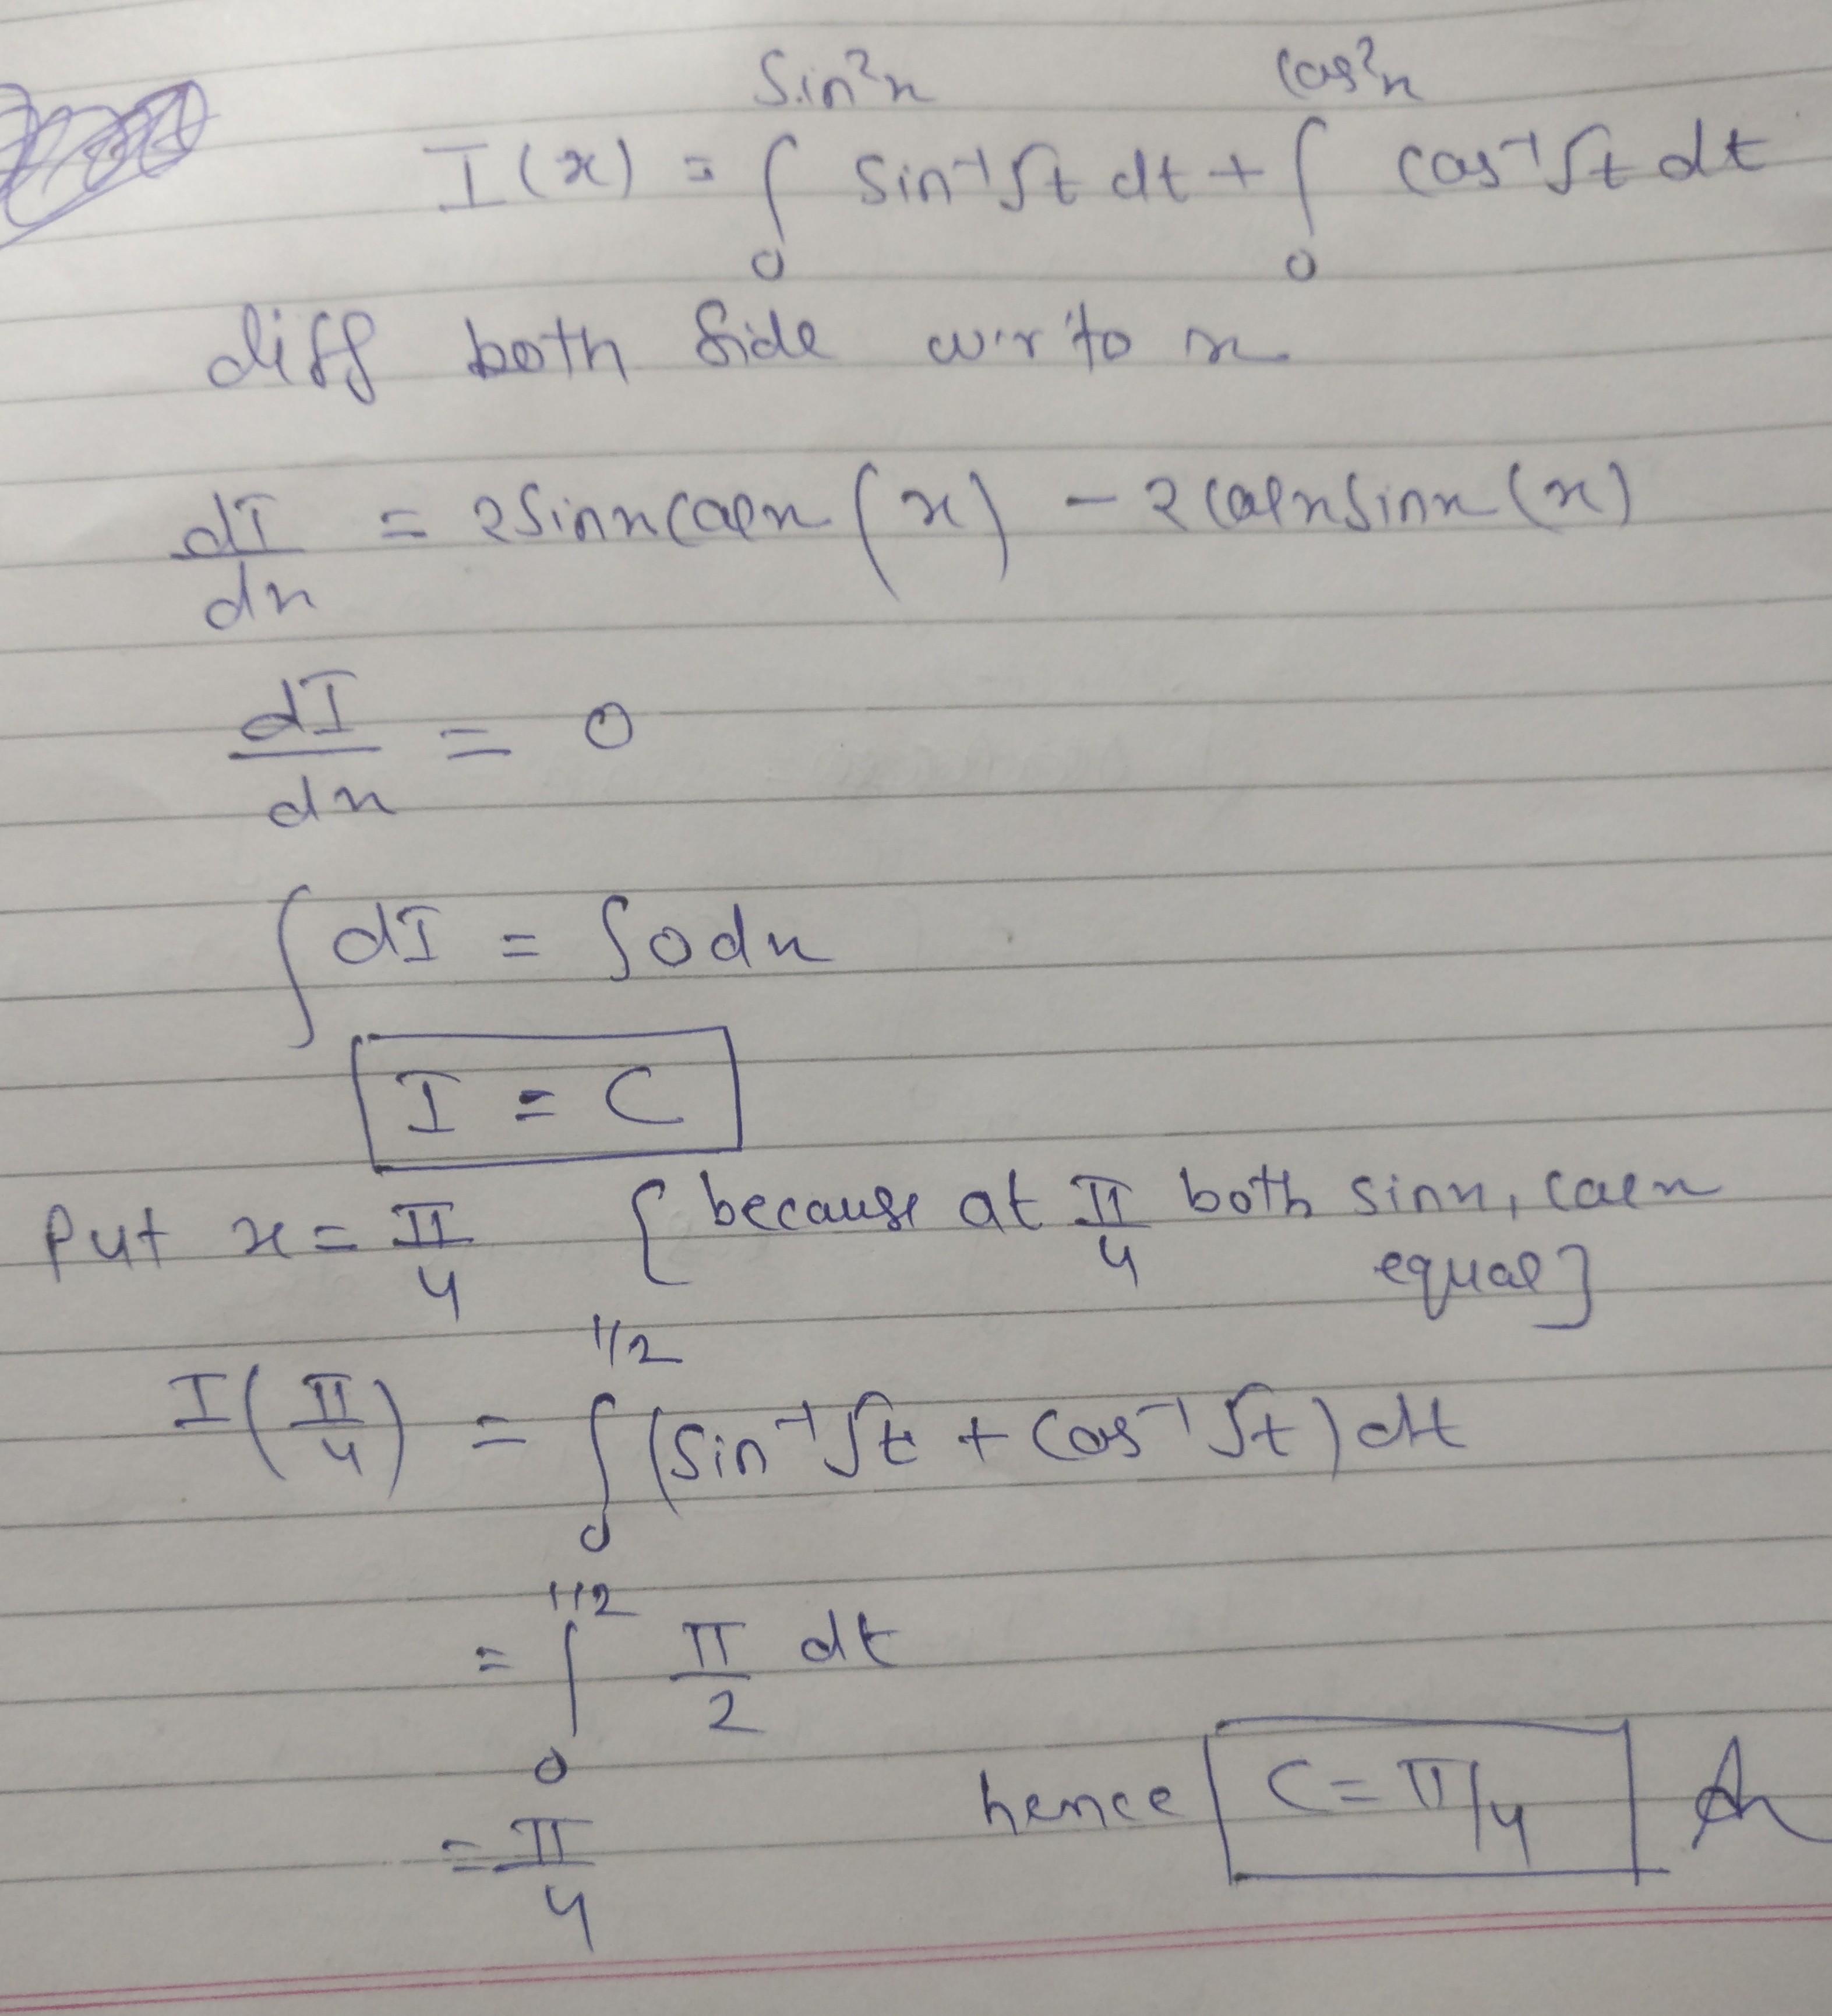 I(x) = ∫₀^{Sin²x} Sin⁻¹√t dt + ∫₀^{Cos²x} Cos⁻¹√t dt
diff both side w.r to x
dI/dx = 2Sinx Cosx (x) - 2 Cosx Sinx (x)
dI/dx = 0
∫ dI = ∫ 0 dx
I = C
Put x = π/4 { because at π/4 both sinx, cosx equal }
I(π/4) = ∫₀^{1/2} (Sin⁻¹√t + Cos⁻¹√t) dt
= ∫₀^{1/2} π/2 dt
= π/4
hence C = π/4